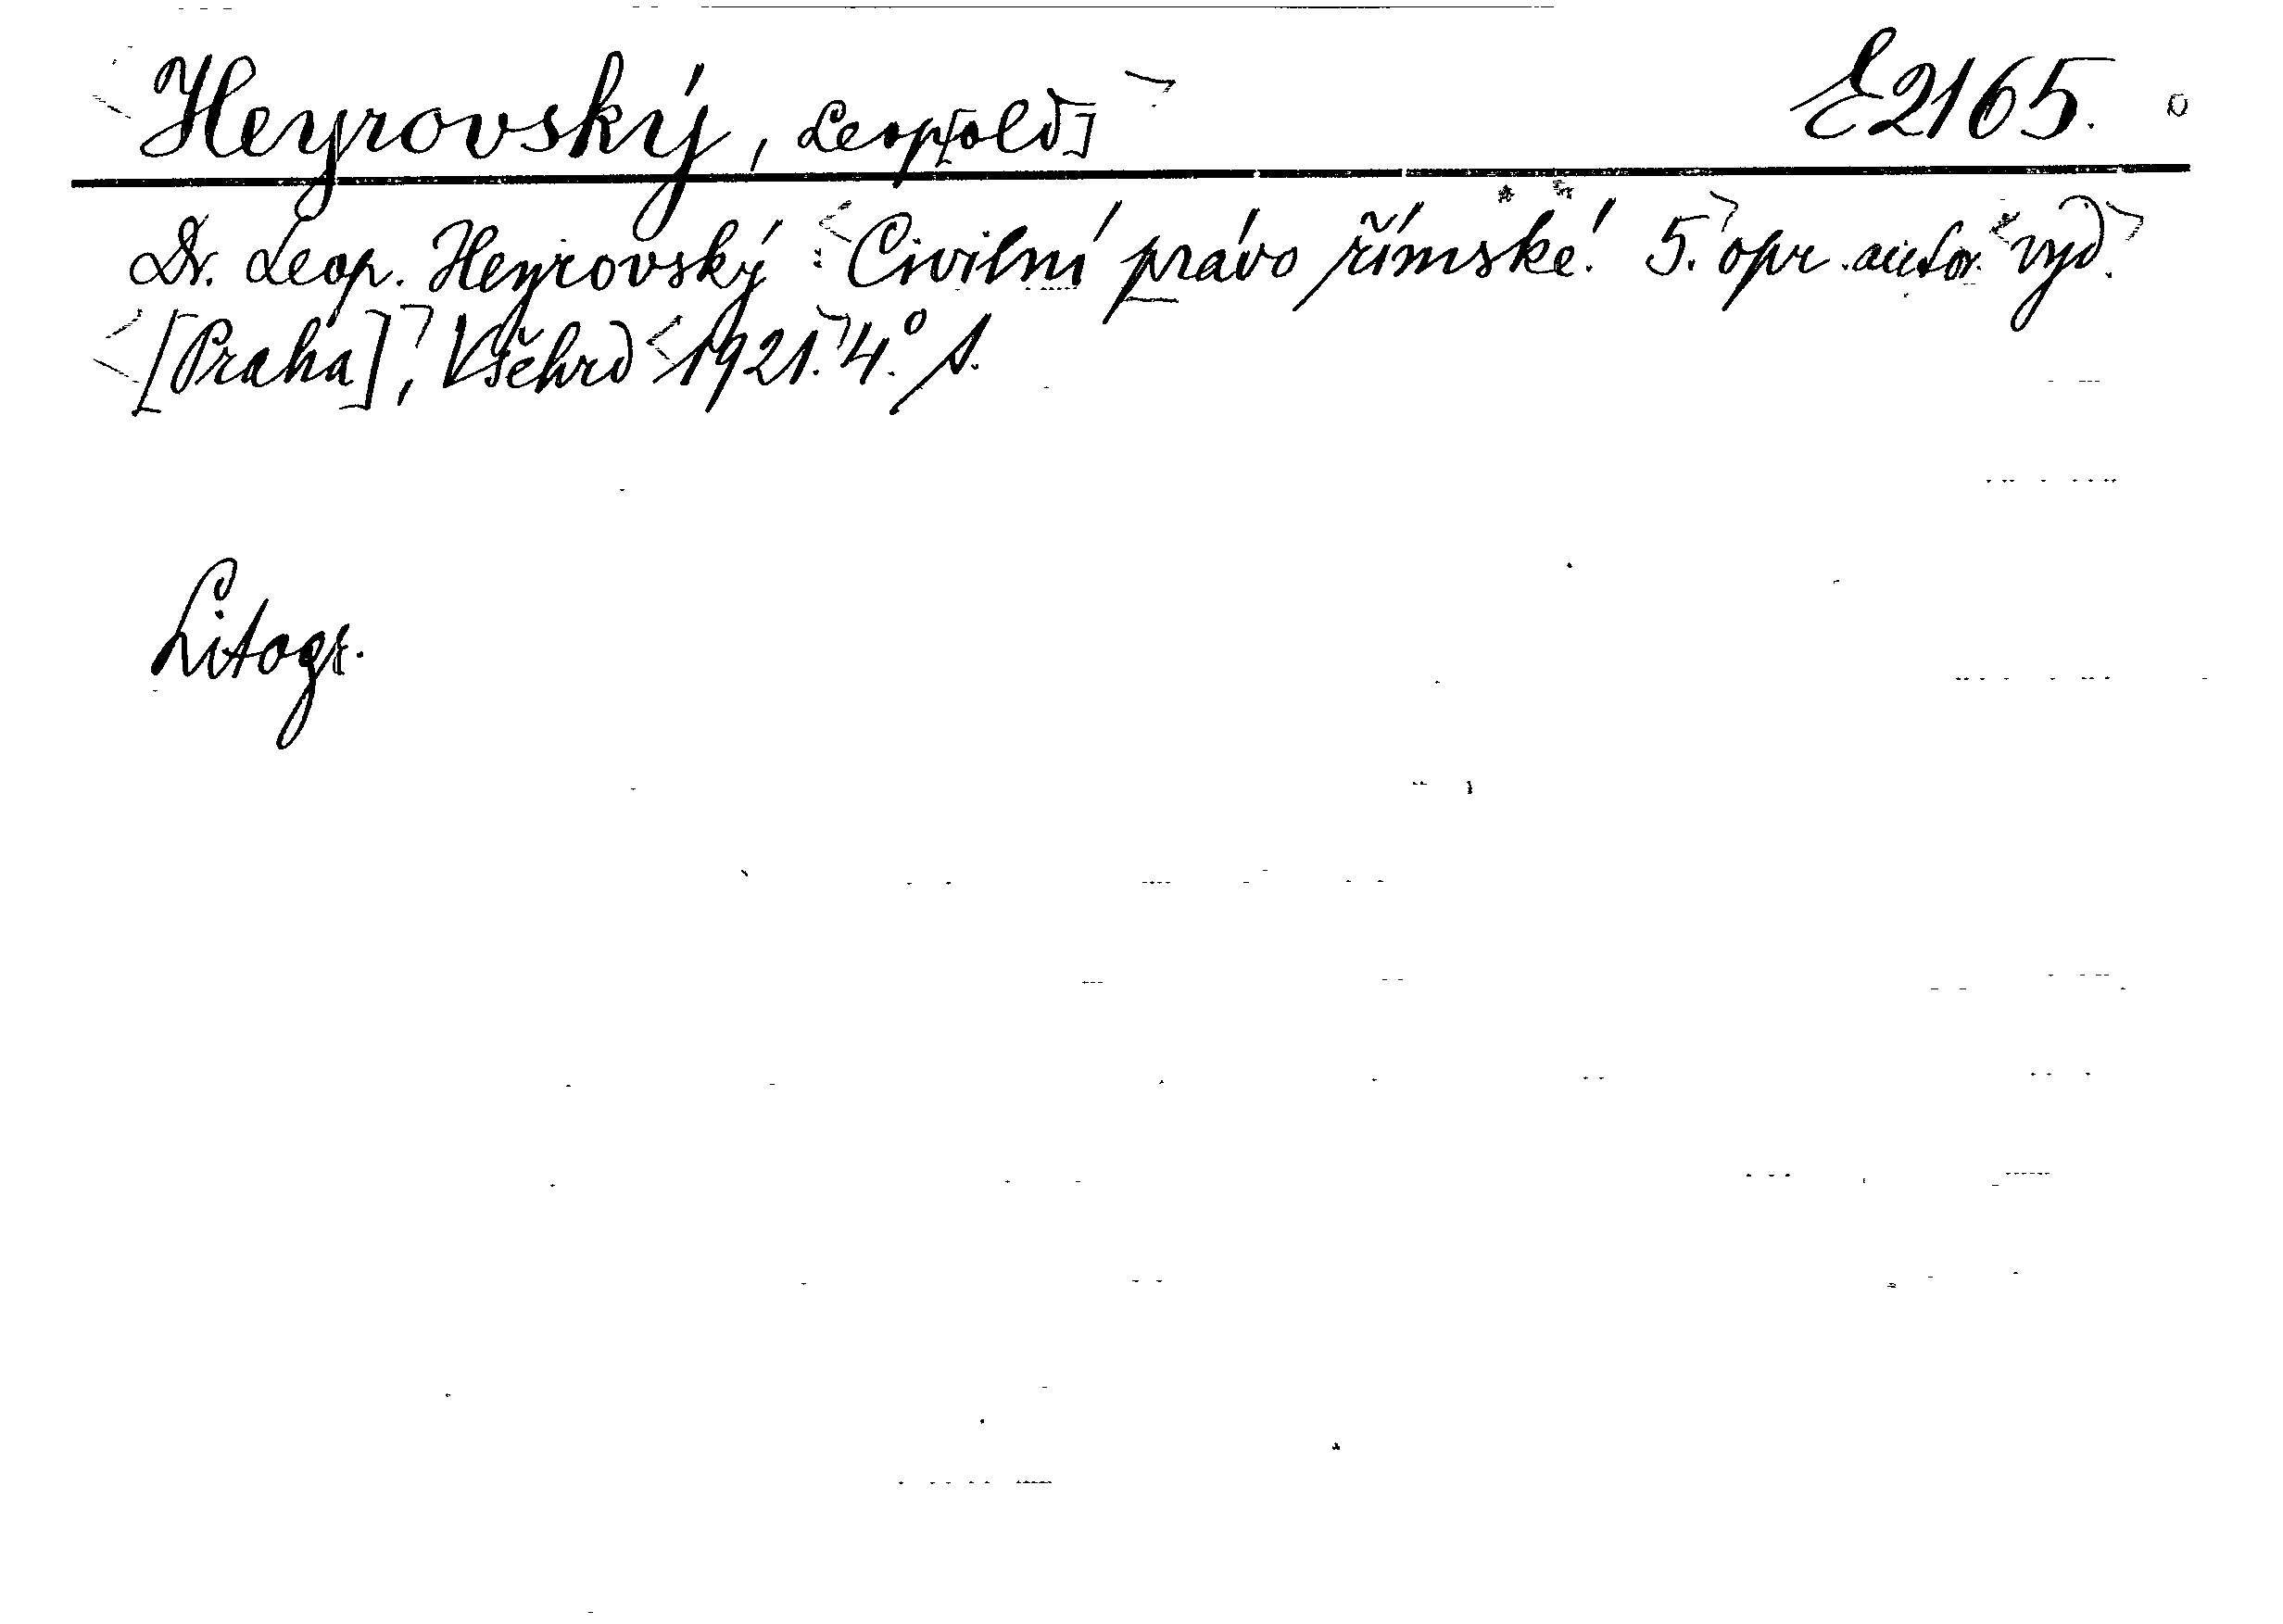 Heyrovský, Leop[old] E2165.
Dr. Leop. Heyrovský: Civilní právo římské. 5. opr. autor. vyd.
[Praha], Všehrd 1921. 4.° s.
Litogr.